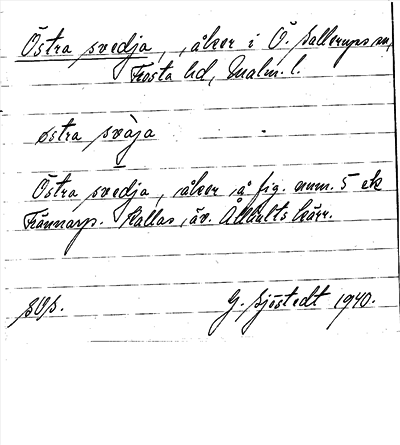 Östra svedja, åker i Ö. Sallerups sn,
Frosta hd, Malm. l.
östra svàja
Östra svedja, åker å fig. num. 5 etc
Frännarp. Kallas äv. Ållhults kärr.
G. Sjöstedt 1940.